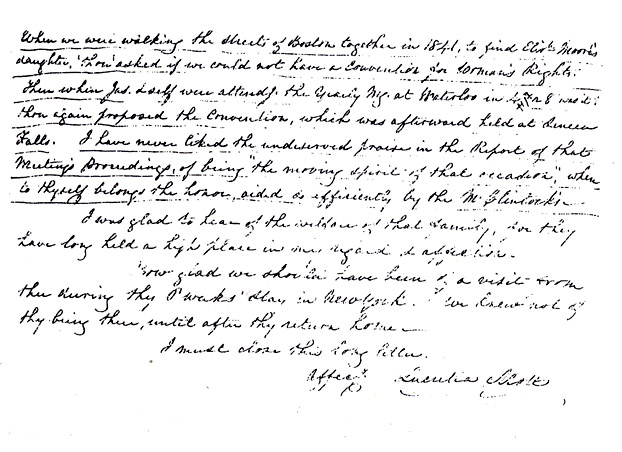 When we were walking the streets of Boston together in 1841, to find Elizth. Moore's
daughter, 'thou' asked if we could not have a Convention for Woman's Rights.
Then when Jas. & self were attendg. the Yearly Mg. at Waterloo in 47 or 8 was it?
thou again proposed the Convention, which was afterward held at Seneca
Falls. I have never liked the undeserved praise in the Report of that
Meeting's Proceedings, of being "the moving spirit of that occasion", when
to thyself belongs the honor, aided so efficiently by the M'Clintocks.
I was glad to hear of the welfare of that family, for they
have long held a high place in our regard & affection.
How glad we should have been of a visit from
thee during thy weeks' stay in New York. we knew not of
thy being there, until after thy return home—
I must close this long letter.
Affecy. Lucretia Mott